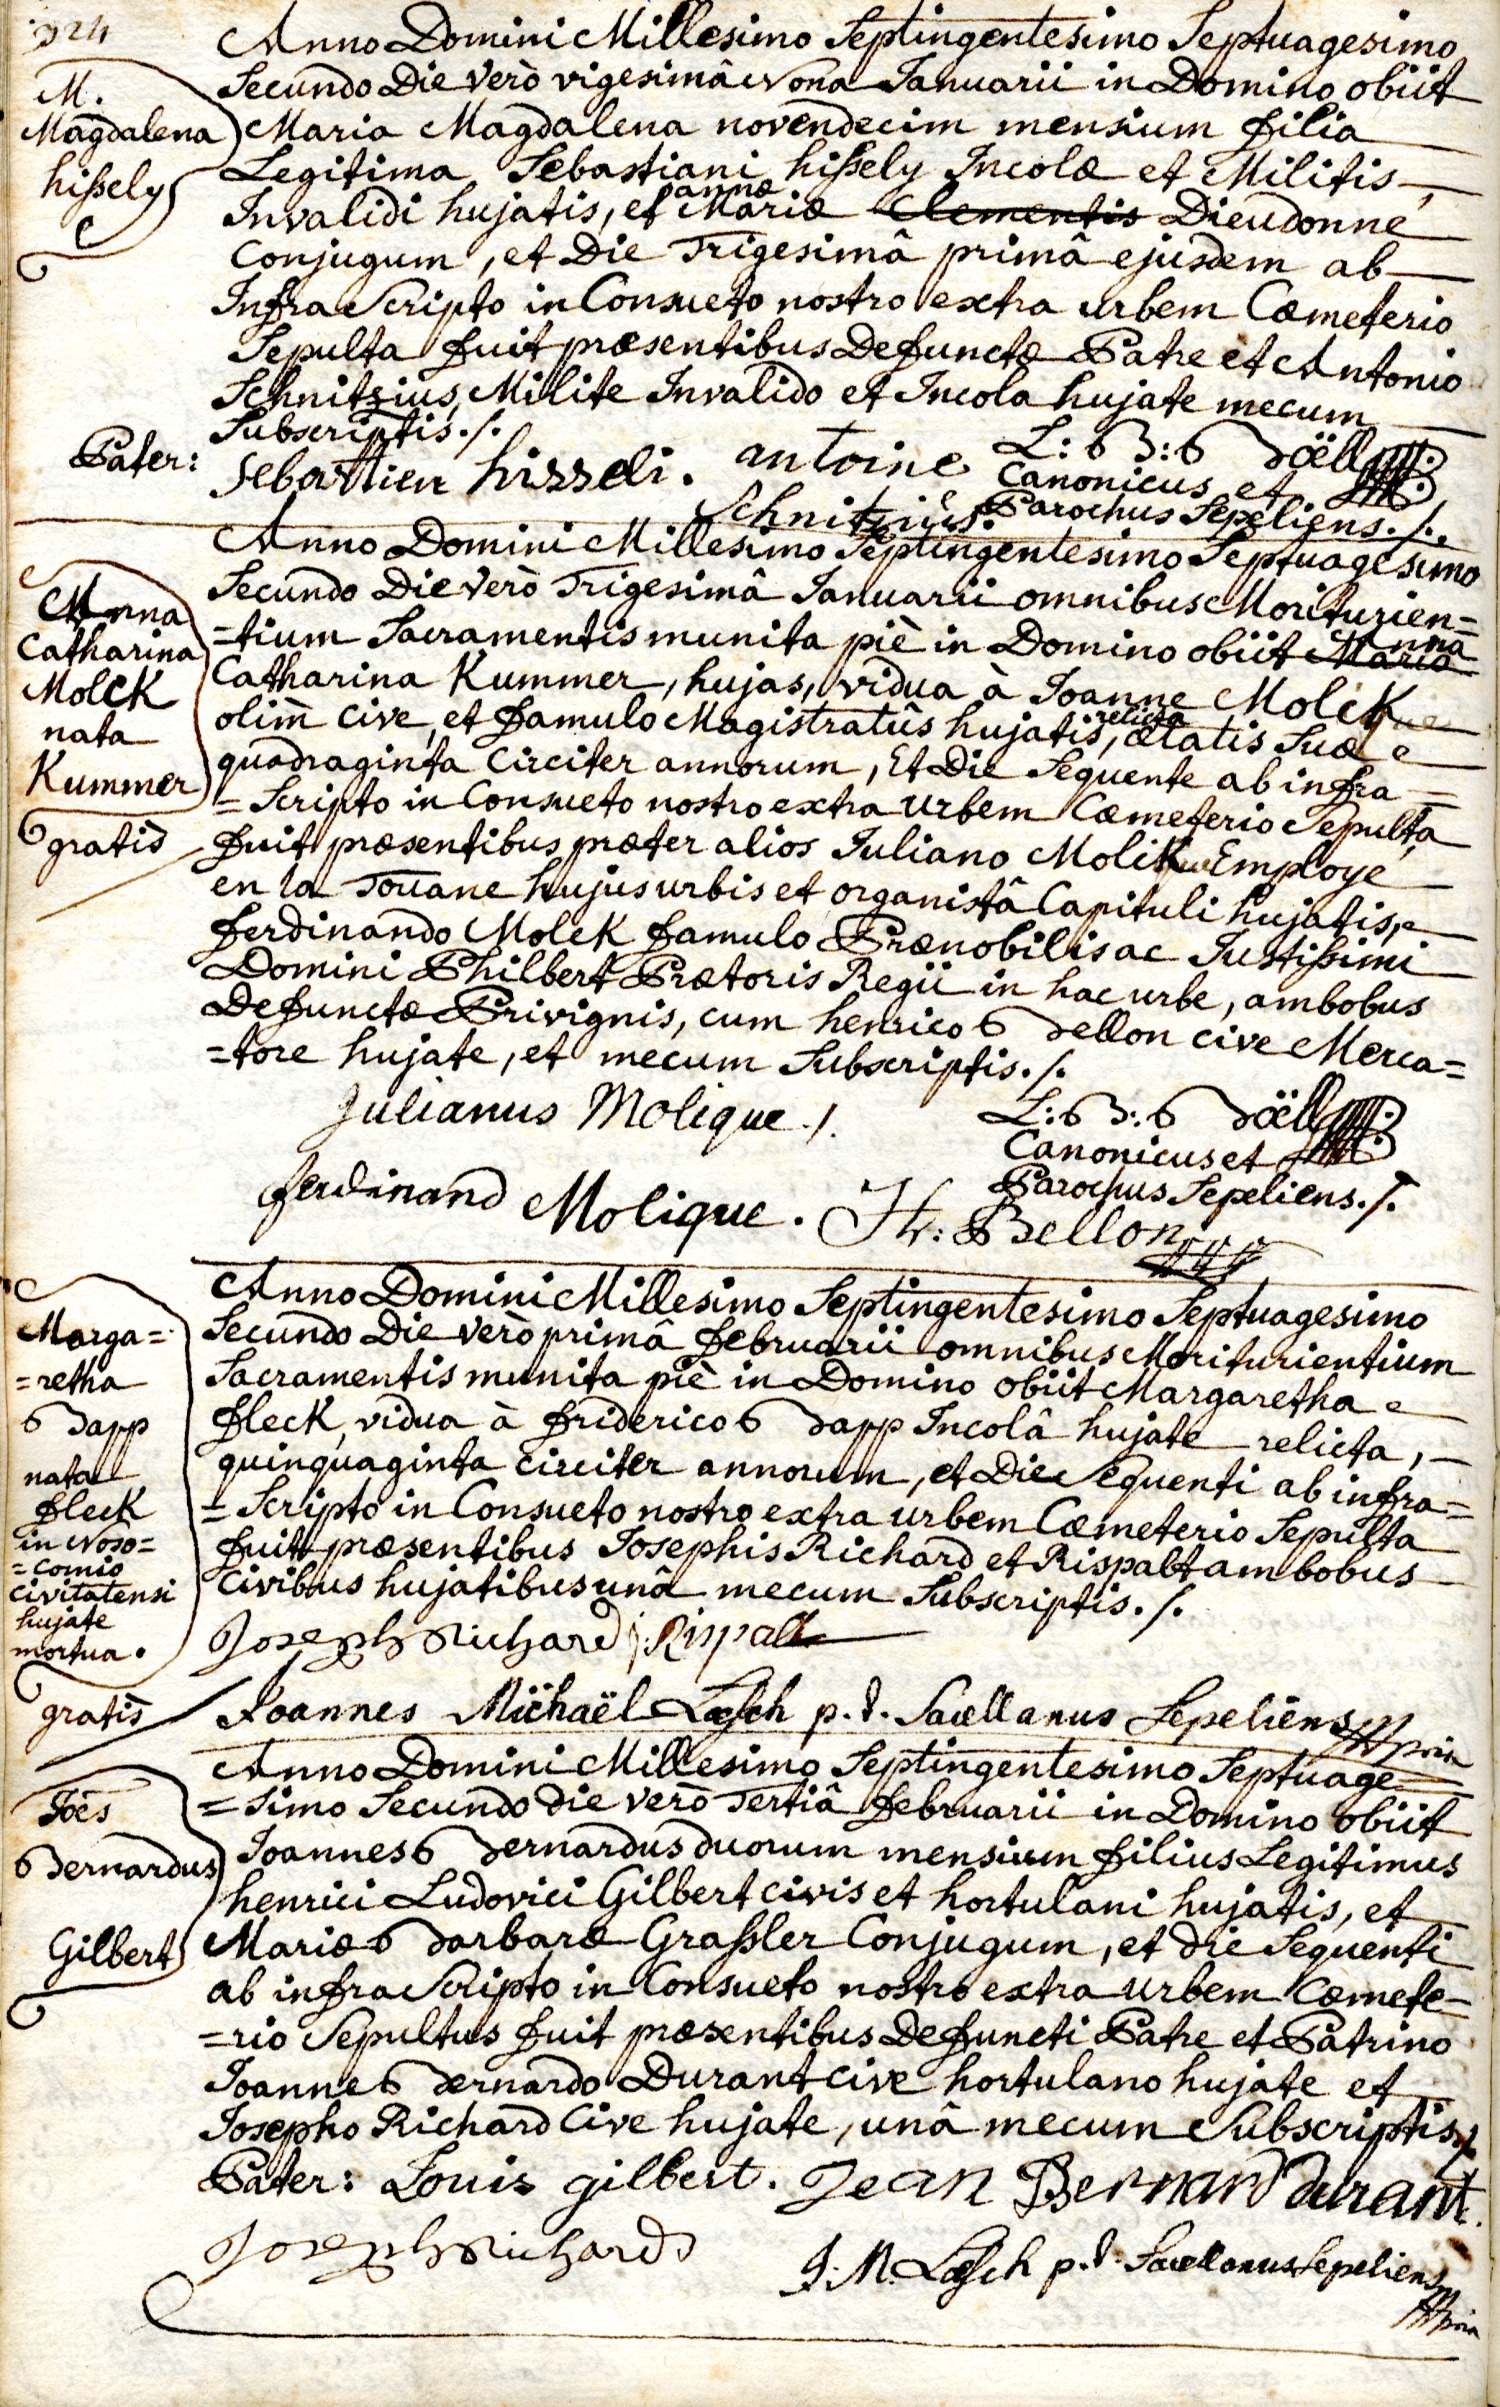 924
M.
Magdalena
hissely
Anno Domini Millesimo Septingentesimo Septuagesimo
Secundo Die verò vigesimâ Nona Januarii in Domino obiit
Maria Magdalena novendecim mensium filia
Legitima Sebastiani hissely Incolæ et Militis
Invalidi hujatis, et Mariæ annæ Clementis Dieudonné
Conjugum, et Die Trigesimâ primâ ejusdem ab
Infra Scripto in Consueto nostro extra urbem Cæmeterio
Sepulta fuit præsentibus Defunctæ Patre et Antonio
Schnitzius, Milite Invalido et Incola hujate mecum
Subscriptis./.
Pater:
Sebasttien hisseli.
antoine
Schnitzius.
L: B: Boëll
Canonicus et
Parochus Sepeliens./.
Anna
Catharina
Molck
nata
Kummer
gratis
Anno Domini Millesimo Septingentesimo Septuagesimo
Secundo Die verò Trigesimâ Januarii omnibus Moriturien=
=tium Sacramentis munita piè in Domino obiit Maria Anna
Catharina Kummer, hujas, vidua à Joanne Molck
olim cive, et famulo Magistratûs hujatis, relicta ætatis Suæ
quadraginta Circiter annorum, Et Die Sequente ab infra
=Scripto in Consueto nostro extra urbem Cæmeterio Sepulta
fuit præsentibus præter alios Juliano Molik Employe
en la Touane hujus urbis et organistâ Capituli hujatis,
Ferdinando Molck famulo Prænobilis ac Justissimi
Domini Philbert Prætoris Regii in hac urbe, ambobus
Defunctæ Privignis, cum henrico Bellon cive Merca=
=tore hujate, et mecum Subscriptis./.
Julianus Molique./.
L: B: Boëll
Canonicus et
Parochus Sepeliens./.
ferdinand Molique.
Hr: Bellon
Marga=
=retha
Bapp
nata
Fleck
in Noso=
=comio
Civitatensi
hujate
mortua.
gratis
Anno Domini Millesimo Septingentesimo Septuagesimo
Secundo Die verò primâ Februarii omnibus Moriturientium
Sacramentis munita piè in Domino obiit Margaretha
Fleck, vidua à Friderico Bapp Incolâ hujate relicta,
quinquaginta circiter annorum, et Die Sequenti ab infra=
=Scripto in Consueto nostro extra urbem Cæmeterio Sepulta
fuit præsentibus Josephis Richard et Rispalt ambobus
Civibus hujatibus unâ mecum Subscriptis./.
Joseph Richard
j: Rispalt
Joannes Michaël Læsch p. t. Sacellanus Sepeliens mpria
Joēs
Bernardus
Gilbert
Anno Domini Millesimo Septingentesimo Septuage=
=simo Secundo die verò Tertiâ Februarii in Domino obiit
Joannes Bernardus duorum mensium filius Legitimus
henrici Ludovici Gilbert civis et hortulani hujatis, et
Mariæ Barbaræ Grassler Conjugum, et die Sequenti
ab infra Scripto in Consueto nostro extra urbem Cæmete=
=rio Sepultus fuit præsentibus Defuncti Patre et Patrino
Joanne Bernardo Durant cive hortulano hujate et
Josepho Richard Cive hujate, unâ mecum Subscriptis./.
Pater: Louis gilbert.
Jean Bernard durant.
Joseph Richard
J. M. Læsch p. t. Sacellanus Sepeliens
mpria